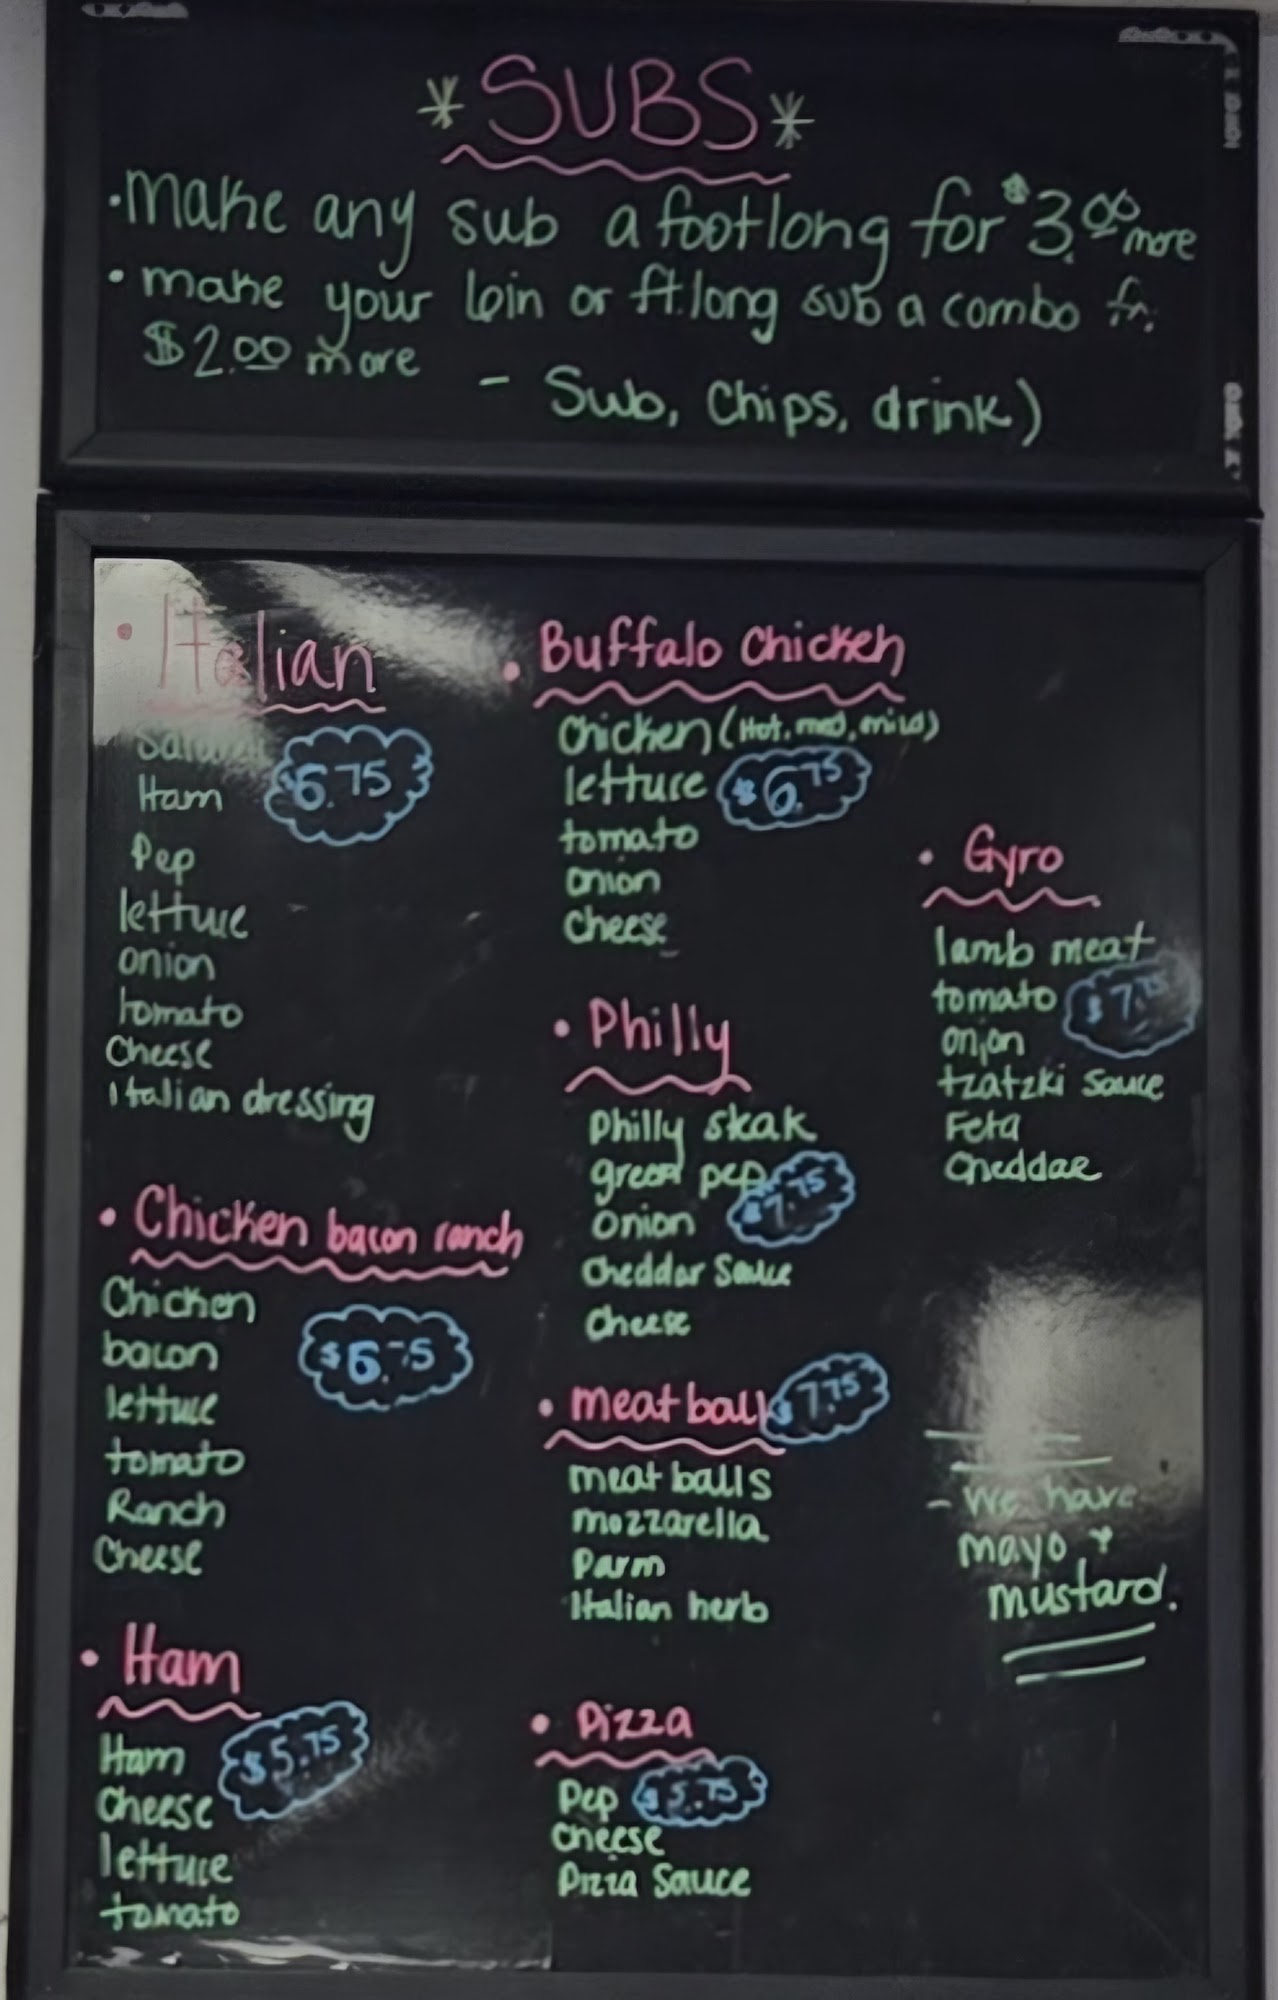 *SUBS*
• Make any sub a footlong for $3.00 more
• make your 6in or ft.long sub a combo fr.
$2.00 more
- Sub, Chips, drink)
• Italian
Ham
$6.75
Pep
lettuce
onion
tomato
Cheese
Italian dressing
• Chicken bacon ranch
Chicken
bacon
$6.75
lettuce
tomato
Ranch
Cheese
• Ham
Ham
$5.75
Cheese
lettuce
tomato
• Buffalo Chicken
Chicken (Hot, med, mild)
lettuce
$6.75
tomato
onion
Cheese
• Philly
Philly steak
green pep
Onion
$7.75
Cheddar Sauce
Cheese
• meatball
$7.75
meatballs
mozzarella
Parm
Italian herb
• Pizza
Pep
$5.75
Cheese
Pizza Sauce
• Gyro
lamb meat
tomato
$7.75
onion
tzatzki sauce
Feta
Cheddar
- We have
mayo +
mustard.